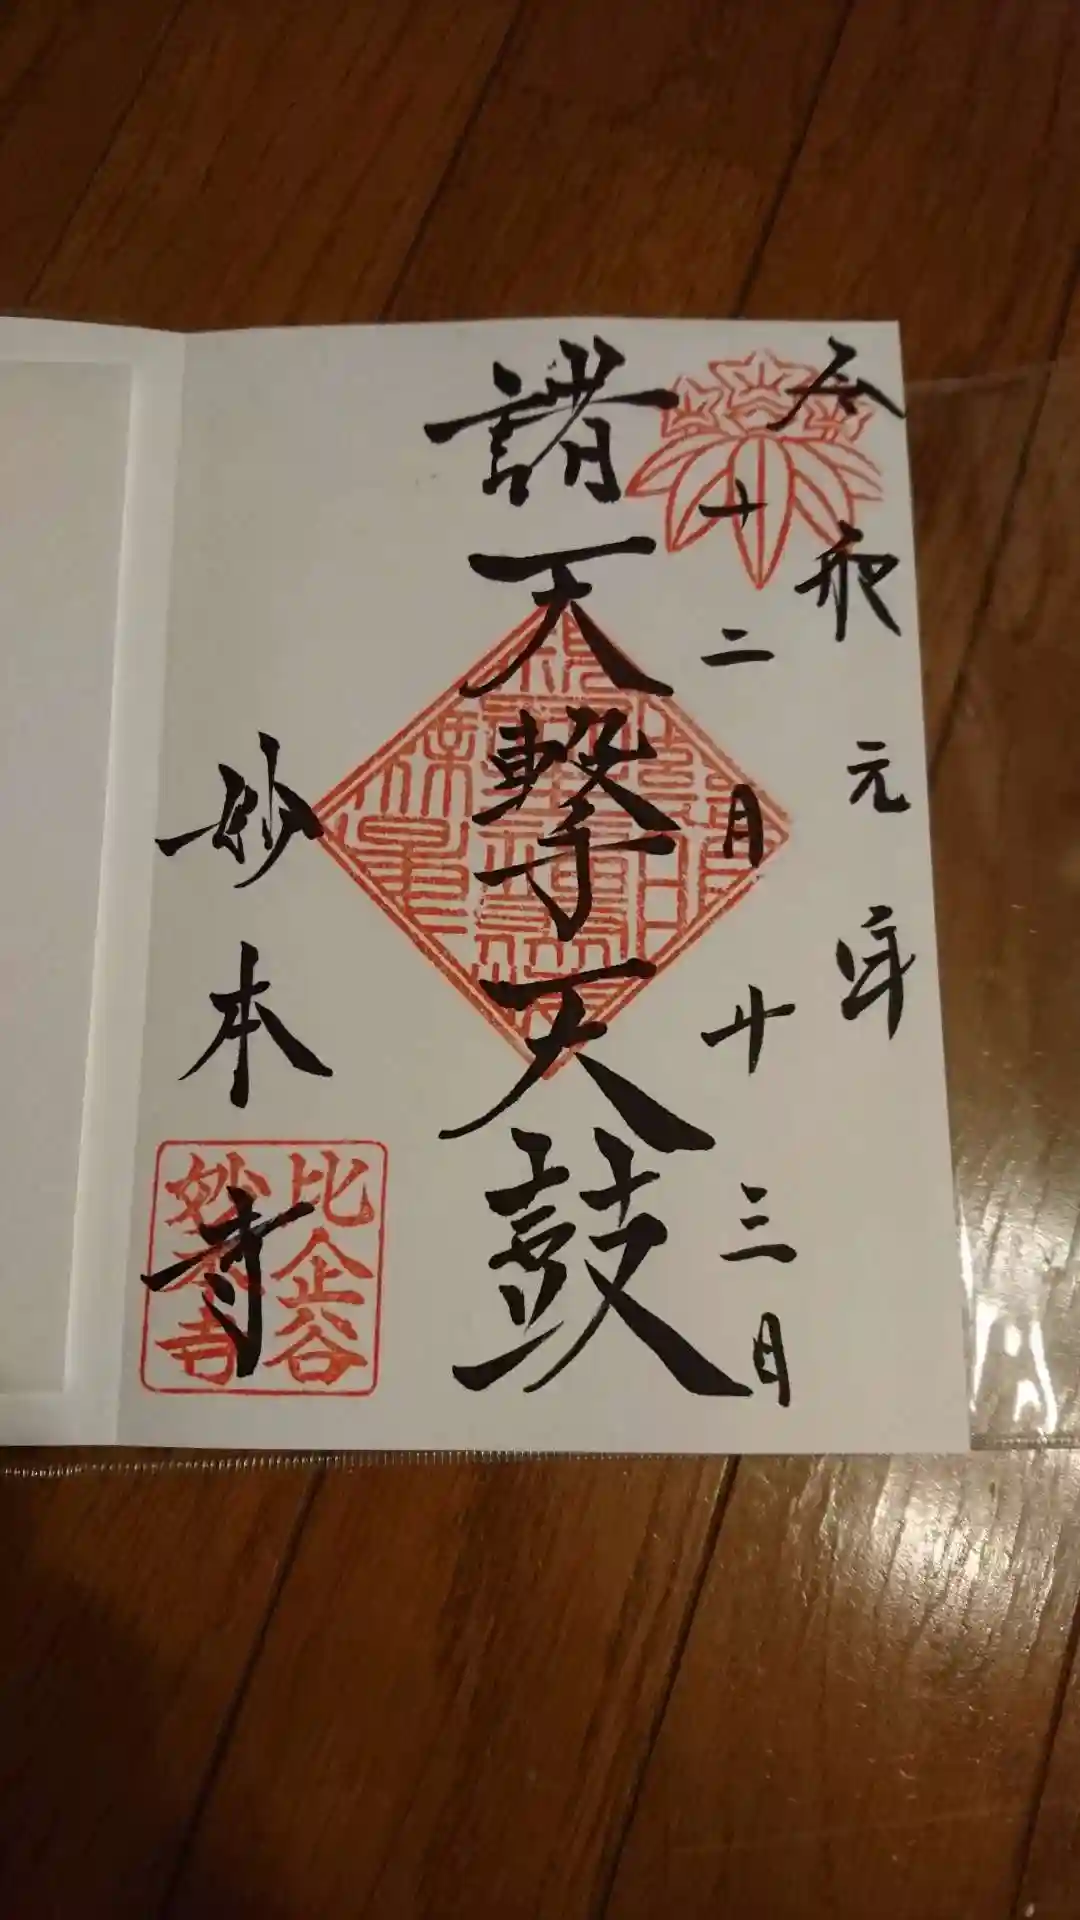 令和元年
十二月廿三日
諸天撃天鼓
妙本寺
比企谷
妙本寺